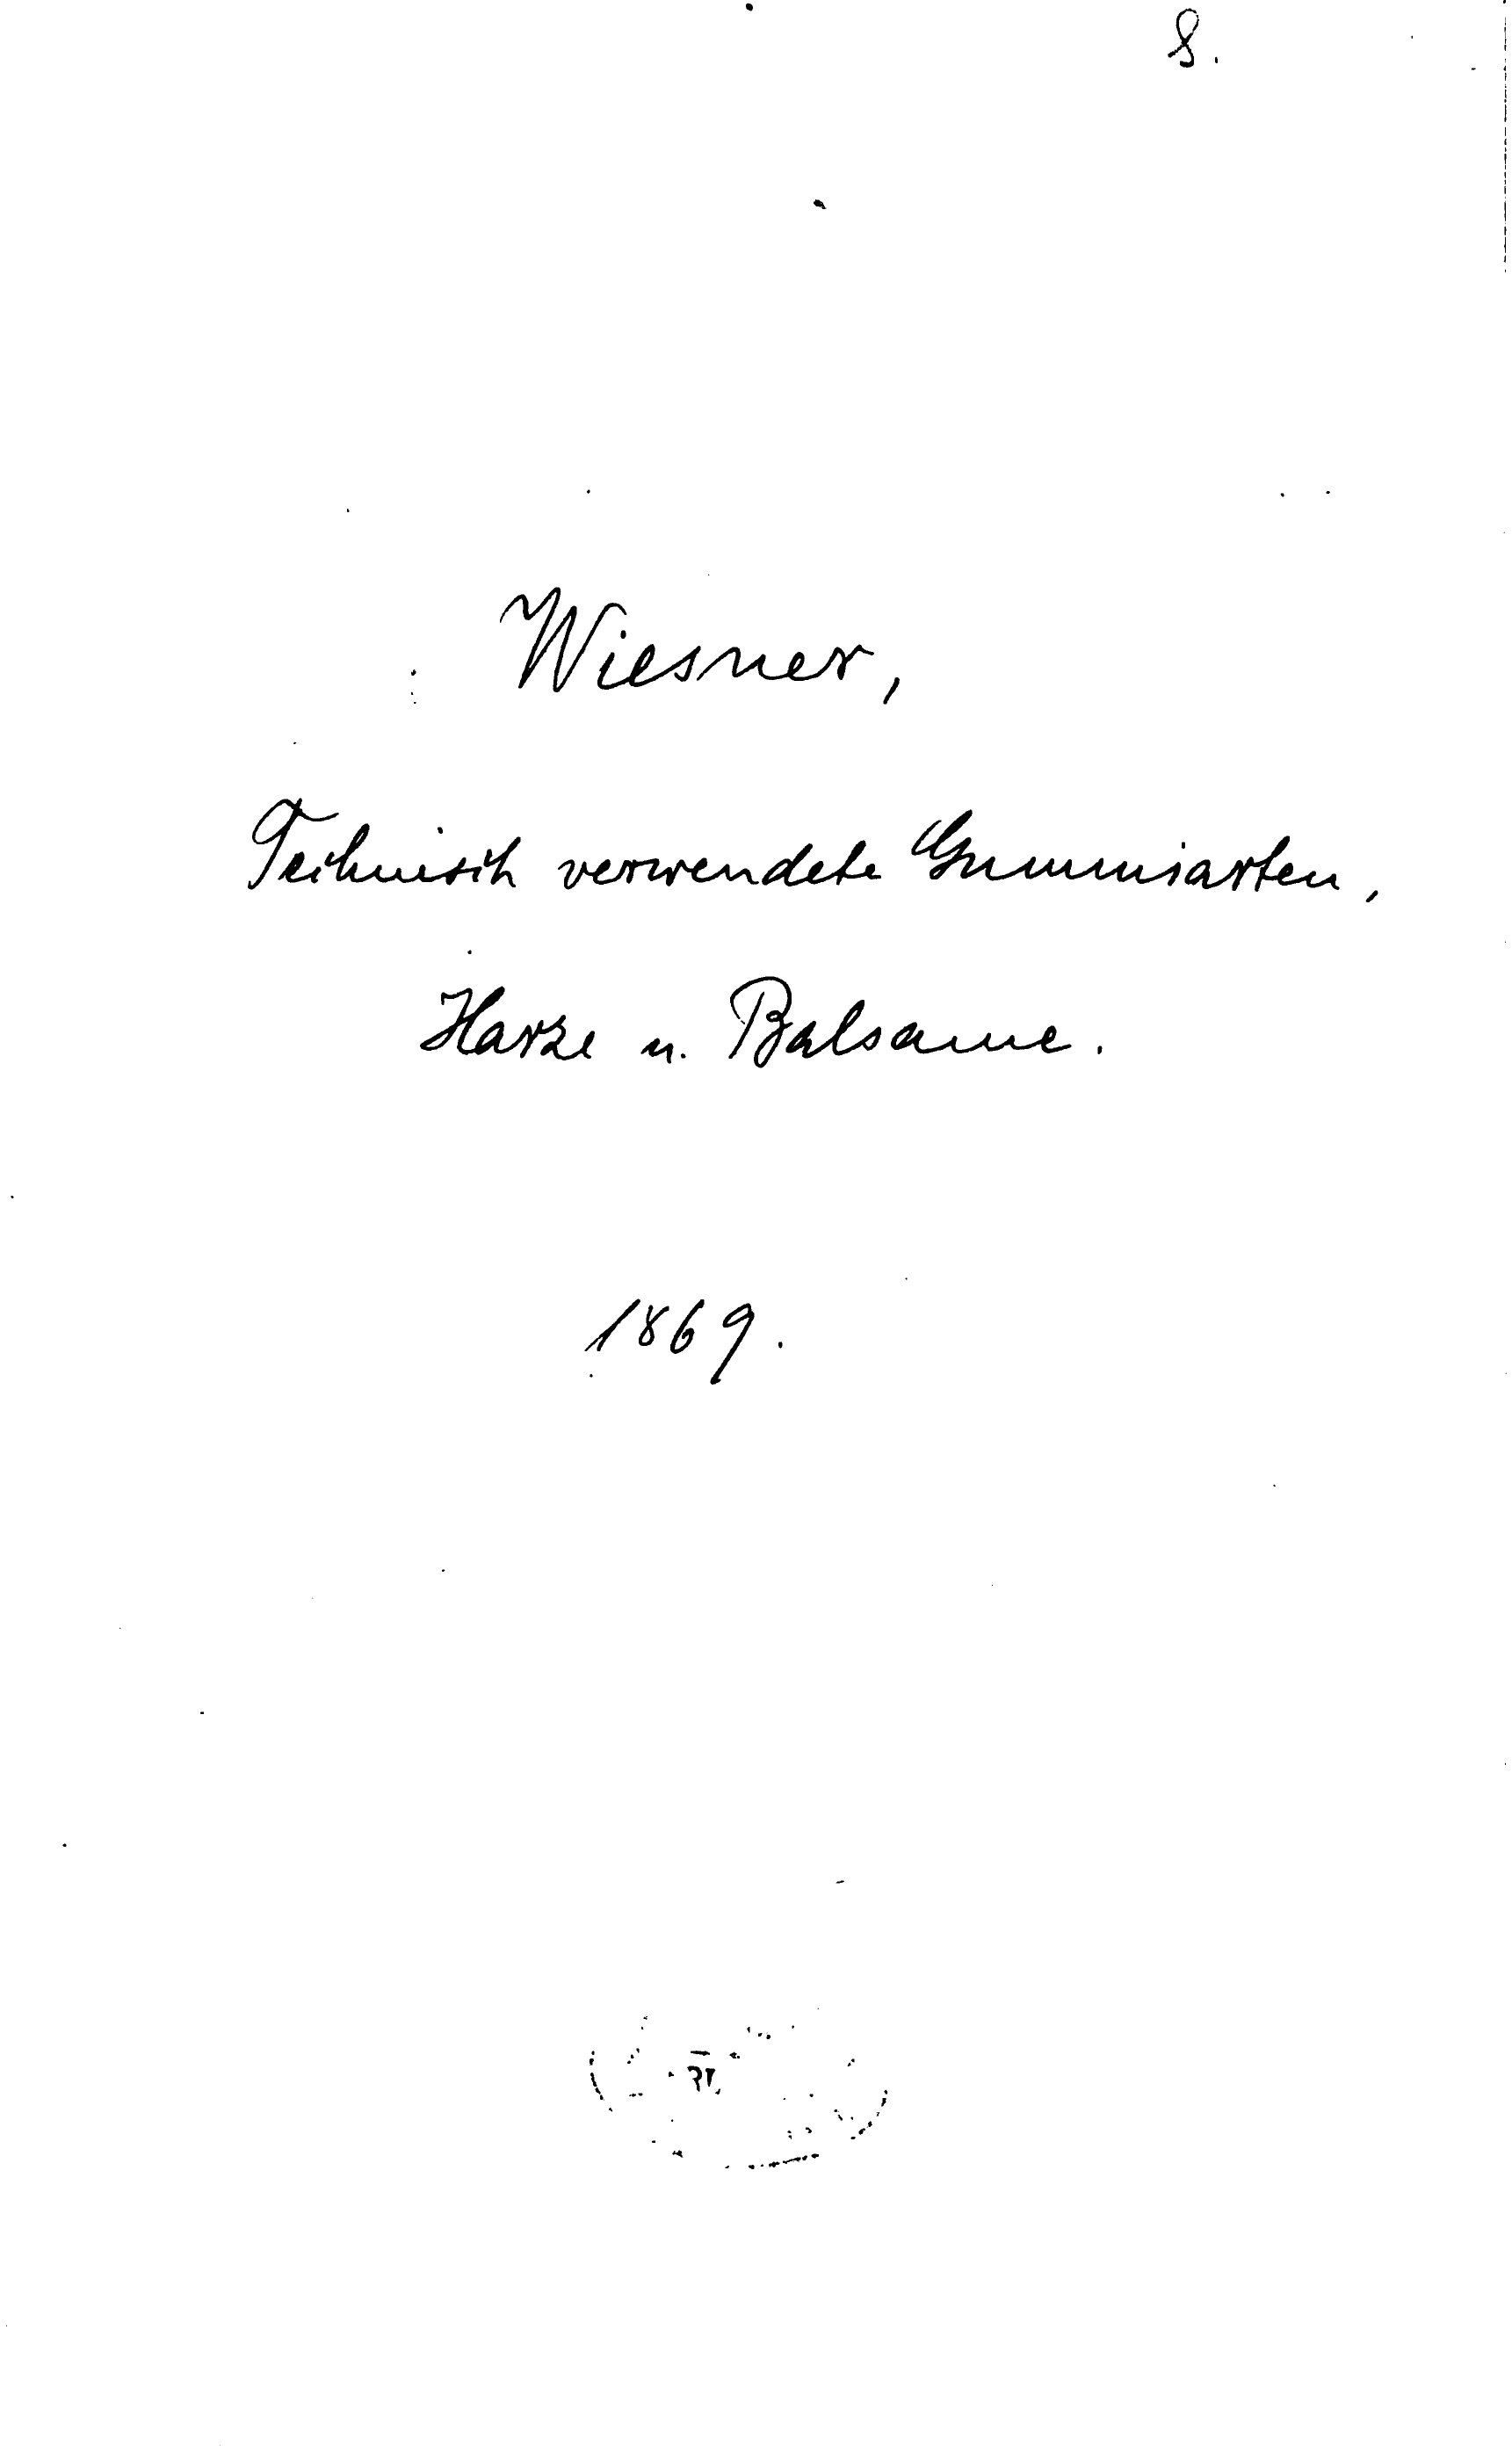 8.
Wiesner,
Technisch verwendete Gummiarten,
Harze u. Balsame.
1869.